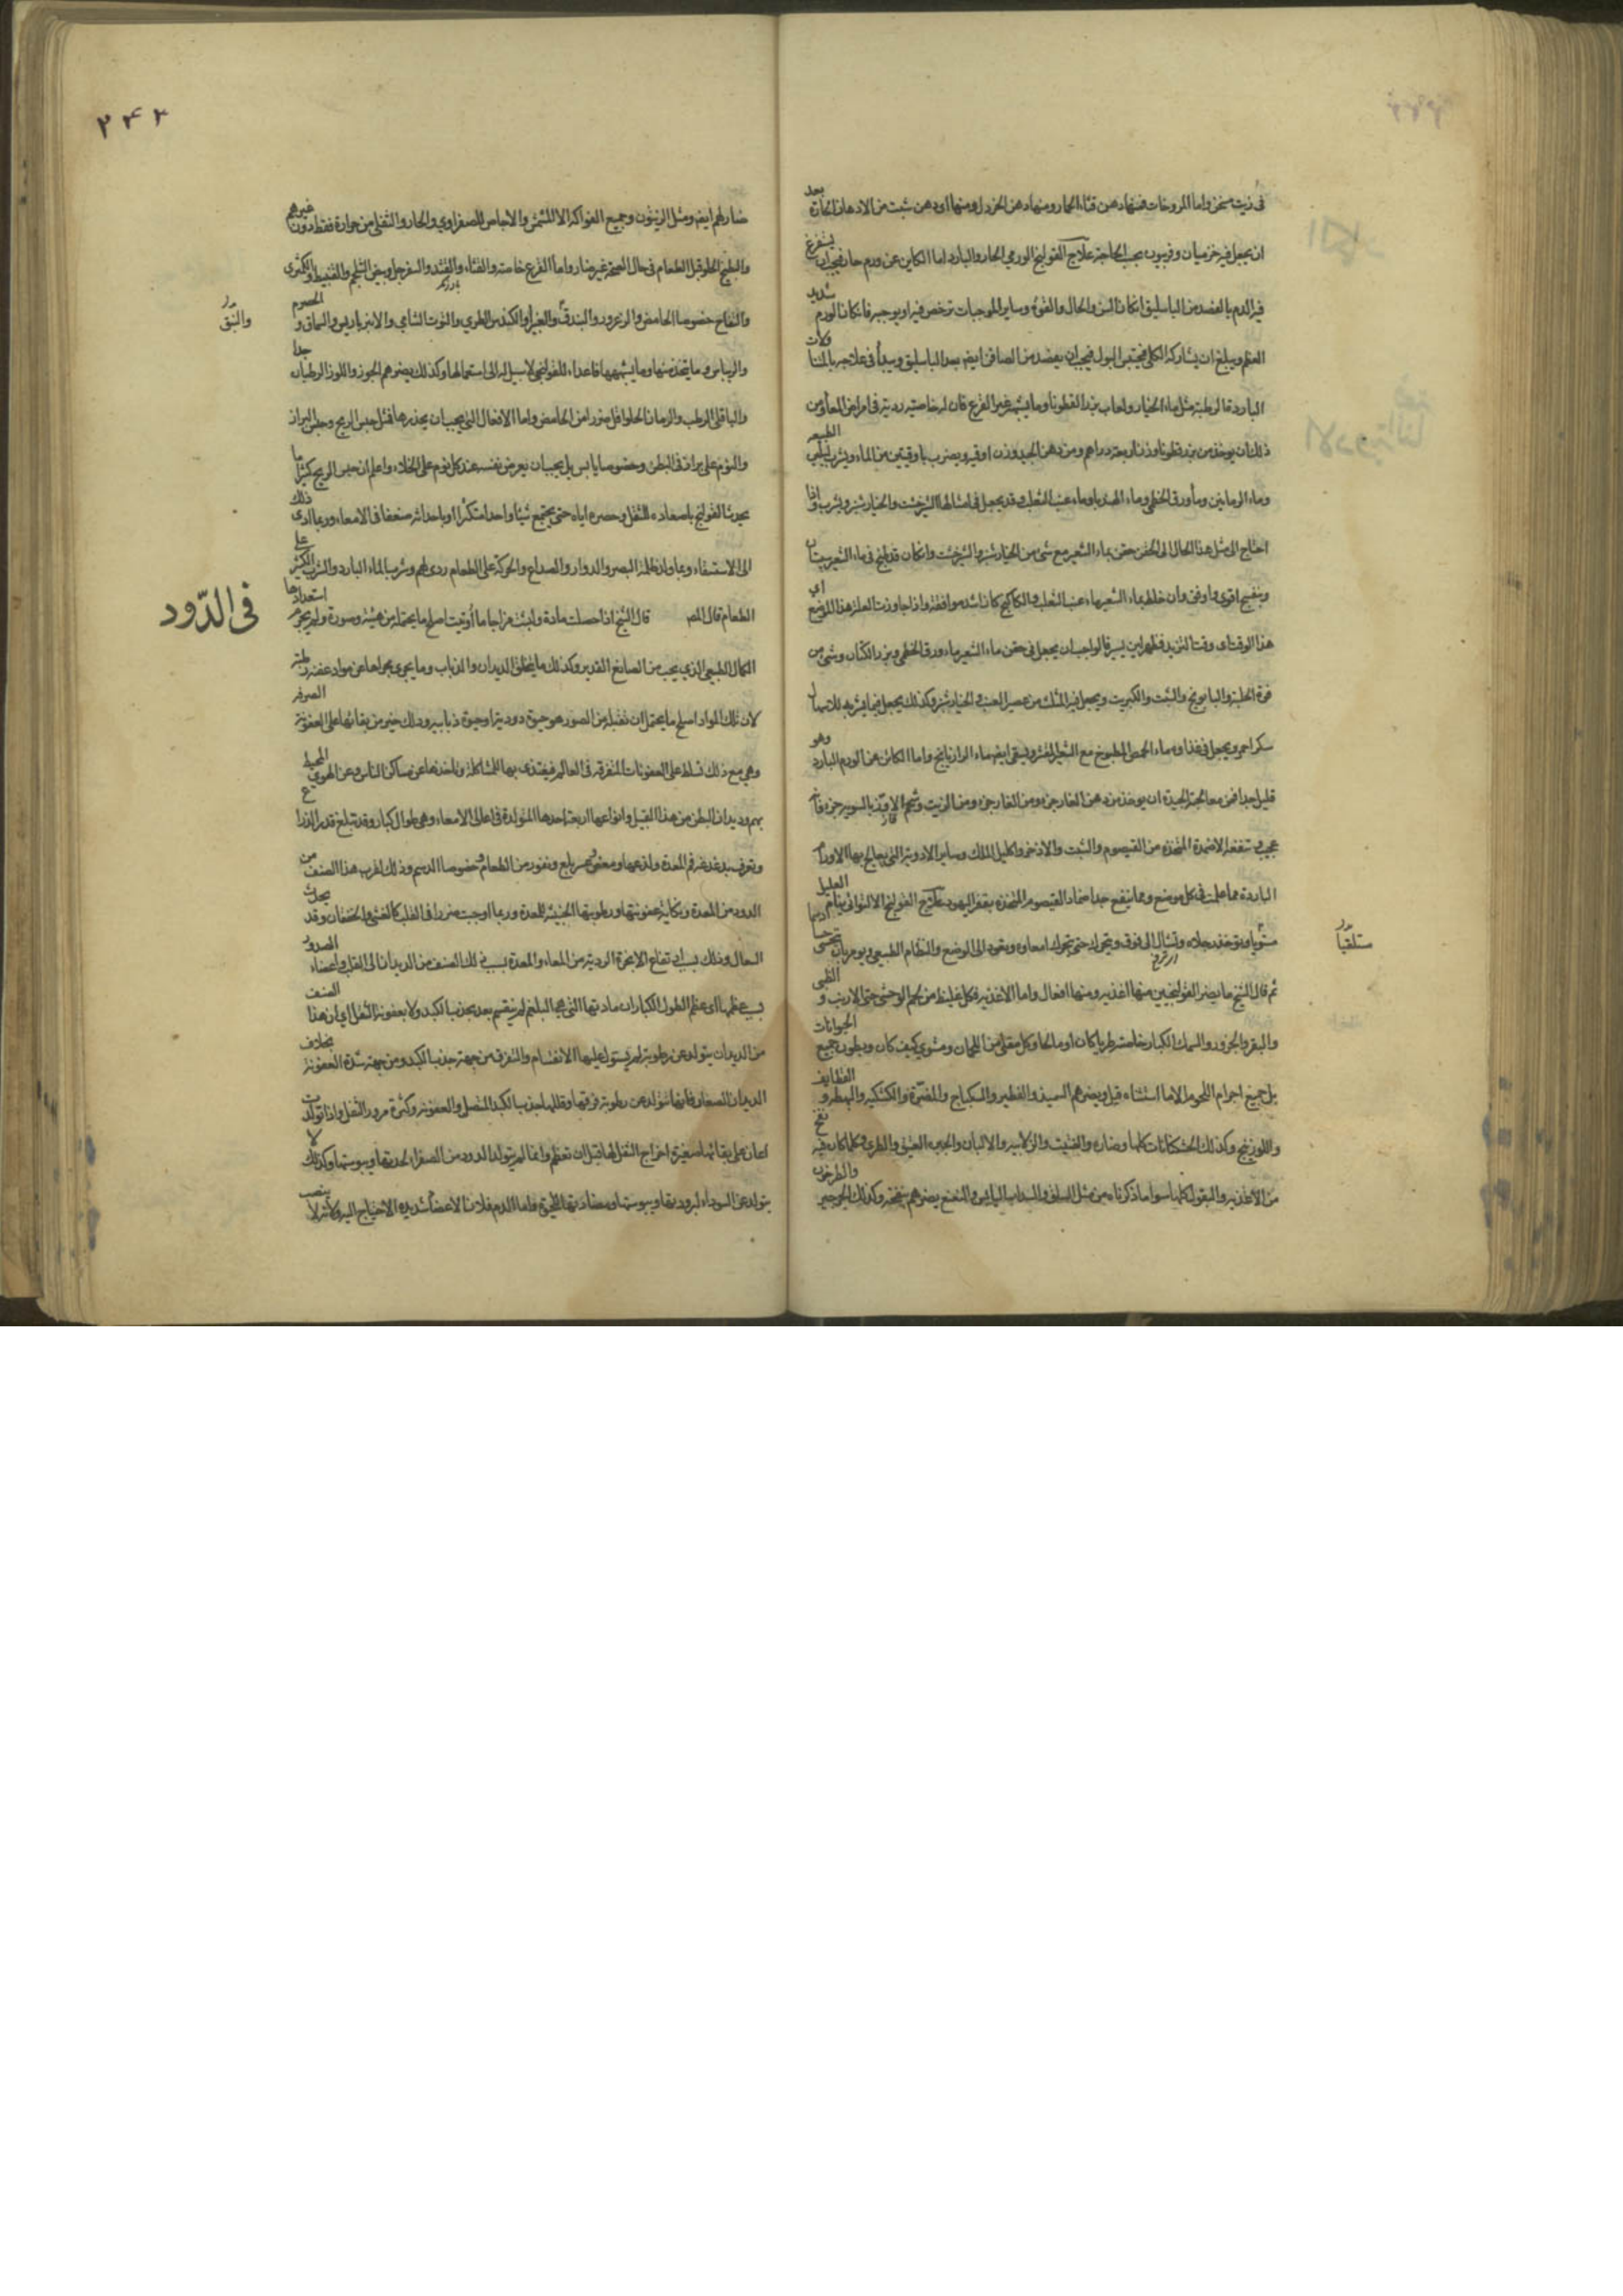 في زيت مسخن واما المروخات فمنها دهن قثاء الحمار ومنها دهن الخردل ومنها اي دهن شئت من الادهان الحارة بعد
ان يجعل فيه جرميان وفربيون بحسب الحاجة علاج القولنج الورمي الحار والبارد اما الكاين عن ورم حار فيجب ان يستفرغ
فيه الدم بالفصد من الباسليق ان كان السن والحال والقوة وساير الموجبات ترخص فيه او يوجبه فان كان الورم شديد
العظم ويبلغ ان يشاركه الكلى فيحتبس البول فيجب ان يفصد من الصافن ايضا بعد الباسليق ويبدأ في علاجه بالمتناولات
الباردة الرطبة مثل ماء الخيار ولعاب بزر القطونا وما يشبهه غير القرع فان له خاصية ردية في امراض المعاء ومن
ذلك ان يوخذ من بزر قطونا وزن اربعة دراهم ومن دهن الجيد وزن اوقية ويضرب باوقيتين من الماء ويشرب ليلين الطبيعه
وماء الرمانين وماء ورق الخطمي وماء الهندبا وماء عنب الثعلب وقد يجعل في امثالها الشيرخشت والخيارشنبر ويشرب واذا
احتاج الى مثل هذا الحال الى الحقن حقن بماء الشعير مع شئ من الخيارشنبر والشيرخشت وان كان قد طبخ في ماء الشعير سبستان
وبنفسج اقوى واوفق وان خلط بماء الشعير ماء عنب الثعلب والكاكنج كان اشد موافقة واذا جاوزت العلة هذا الموضع اي
هذا الوقت اي وقت التزيد فظهر لين يسير فالواجب ان يجعل في حقن ماء الشعير ماء ورق الخطمي وبزر الكتان وشئ من
قوة الحلبة والبابونج والشبت والكبريت ويجعل فيه المثلث من عصير العنب والخيارشنبر وكذلك يجعل فيما يشربه للاسهال
سكر احمر ويجعل في غذاؤه ماء الحمص المطبوخ مع الشعير المقشر ويسقى ايضا ماء الرازيانج واما الكائن عن الورم البارد وهو
قليل جدا فمن معالجته الجيدة ان يوخذ من دهن الغار جزء ومن الغار جزء ومن الزيت وشحم الاوز بالسوية جزء فانه
عجيب وتنفعه الاضمدة المتخذة من القيصوم والشبت والاذخر واكليل الملك وساير الادوية التي يعالج بها الاورام
الباردة مما علمت في كل موضع ومما ينفع جدا ضماد القيصوم المتخذة بقفر اليهود علاج القولنج الالتوائي ينام العليل
مستويا وتؤخذ رجلاه وتشال الى فوق ويحرك حتى تتحرك امعاؤه ويعود الى الوضع والنظام الطبيعي ويومر بان يتحسى
مستلقيا
ثم قال الشيخ ما يضر القولنجيين منها اغذيه ومنها افعال واما الاغذيه فكل غليظ من لحم الوحش حتى الارنب و الظبي
والبقر والجزور والسمك الكبار خاصة طريا كان او مالحا وكل مقلي من اللحمان ومشوي كيف كان وبطون جميع الحيوانات
بل جميع اجرام اللحوم الا ما استثناء قبل ويضرهم السميذ والفطير والسكباج والمضيرة والكشكيه والبهطه و القطايف
واللوزينج وكذلك الخشكنانات كلها وضاره والفتيت والزلابيه والالبان والجبن العتيق والطري وكلما كان فيه نفخ
من الاغذيه والبقول كلها سوا ما ذكرناه من مثل السلق والسذاب اليابس والنعنع يضرهم بنفخه وكذلك الجرجير والطرخون
۲۴۳
ضار لهم ايضا ومثل الزيتون وجميع الفواكه الا المشمش والاجاص للصفراوي والحار والثفلي من حرارة فقط دون غيرهم
والبطيخ الحلو قبل الطعام في حال الصحة غير ضار واما القرع خاصة والقثاء والقثد والسفرجل وحتى الشلجم والقنبيط والكمثرى
والتفاح خصوصا الحامض والزعرور والبندق والغبيرا والكندس الطري والتوت الشامي والانبرباريس والسماق و الحصرم
والنبق
والريباس وما يتخذ منها وما يشبهها فاعداء للقولنجي لا سبيل له الى استعمالها وكذلك يضرهم الجوز واللوز الرطبان جدا
والباقلى الرطب والرمان الحلو اقل ضررا من الحامض واما الافعال التي يجب ان يحذرها فمثل حبس الريح وحبس البراز
والنوم على براز في البطن وخصوصا يابس بل يجب ان يعرض نفسه عند كل نوم على الخلاء واعلم ان حبس الريح كثيرا ما
يحدث القولنج باصعاده للثفل وحصره اياه حتى يجتمع شيئا واحدا متكثرا او باحداثه ضعفا في الامعاء وربما ادى ذلك
الى الاستسقاء وربما ولد ظلمة البصر والدوار والصداع والحركة على الطعام ردي لهم وشرب الماء البارد والشراب الكثير على
الطعام قال المصر قال الشيخ اذا حصلت مادة وابتت مزاجا ما أوتيت اصلح ما يحتمله من هيئة وصورة ولم يحرم استعدادها
في الدّود
الكمال الطبيعي الذي يجب من الصانع القدير وكذلك ما يخلق الديدان والذباب وما يجري مجراها من مواد عفنة رطبة
لان تلك المواد اصلح ما يحتمل ان تقبله من الصور هو حيوة دودية او حيوة ذبابيه وذلك خير من بقائها على العفونة الصرفه
وهي مع ذلك تسلط على العفونات المتفرقة في العالم فيغتذي بها للمشاكلة وتاخذها عن مساكن الناس وعن الهوي المحيط
بهم وديدان البطن من هذا القبيل وانواعها اربعة احدها المتولدة في اعالي الامعاء وهي طوال كبار وقد تبلغ قدر الذراع
وتعرف بدغدغة فم المعدة ولذعها ومغص وعسر بلع ونفور من الطعام وخصوصا الدسم وذلك لقرب هذا الصنف من
الدود من المعدة ونكاية عفونتها ورطوبتها الخبيثة للمعدة وربما اوجبت ضررا في القلب كالغشي والخفقان وقد يحدث
السعال وذلك بسبب ارتفاع الابخرة الردية من المعاء والمعدة بسبب ذلك الصنف من الديدان الى القلب واعضاء الصدر و
بسبب عظمها اي عظم الطول الكبار ان مادتها التي هي البلغم لم يتقسم بعد بجذب الكبد ولا بعفونة الثفل اي ان هذا الصنف
من الديدان يتولد عن رطوبة لم يستول عليها الانقسام والتفرق من جهة جذب الكبد ومن جهة شدة العفونة بخلاف
الديدان الصغار فانها تتولد عن رطوبة فرقها وقللها جذب الكبد المتصل والعفونة وكثرة مرور الثفل واذا تولدت
اعان على بقائها صغيرة اخراج الثفل لها قبل ان تعظم وانما لم يتولد الدود من الصفراء لحدتها ويبوستها وكذلك لا
يتولد عن السوداء لبرودتها ويبوستها ومضادتها للحيوة واما الدم فلان الاعضاء شديدة الاحتياج اليه ولانه لا ينصب